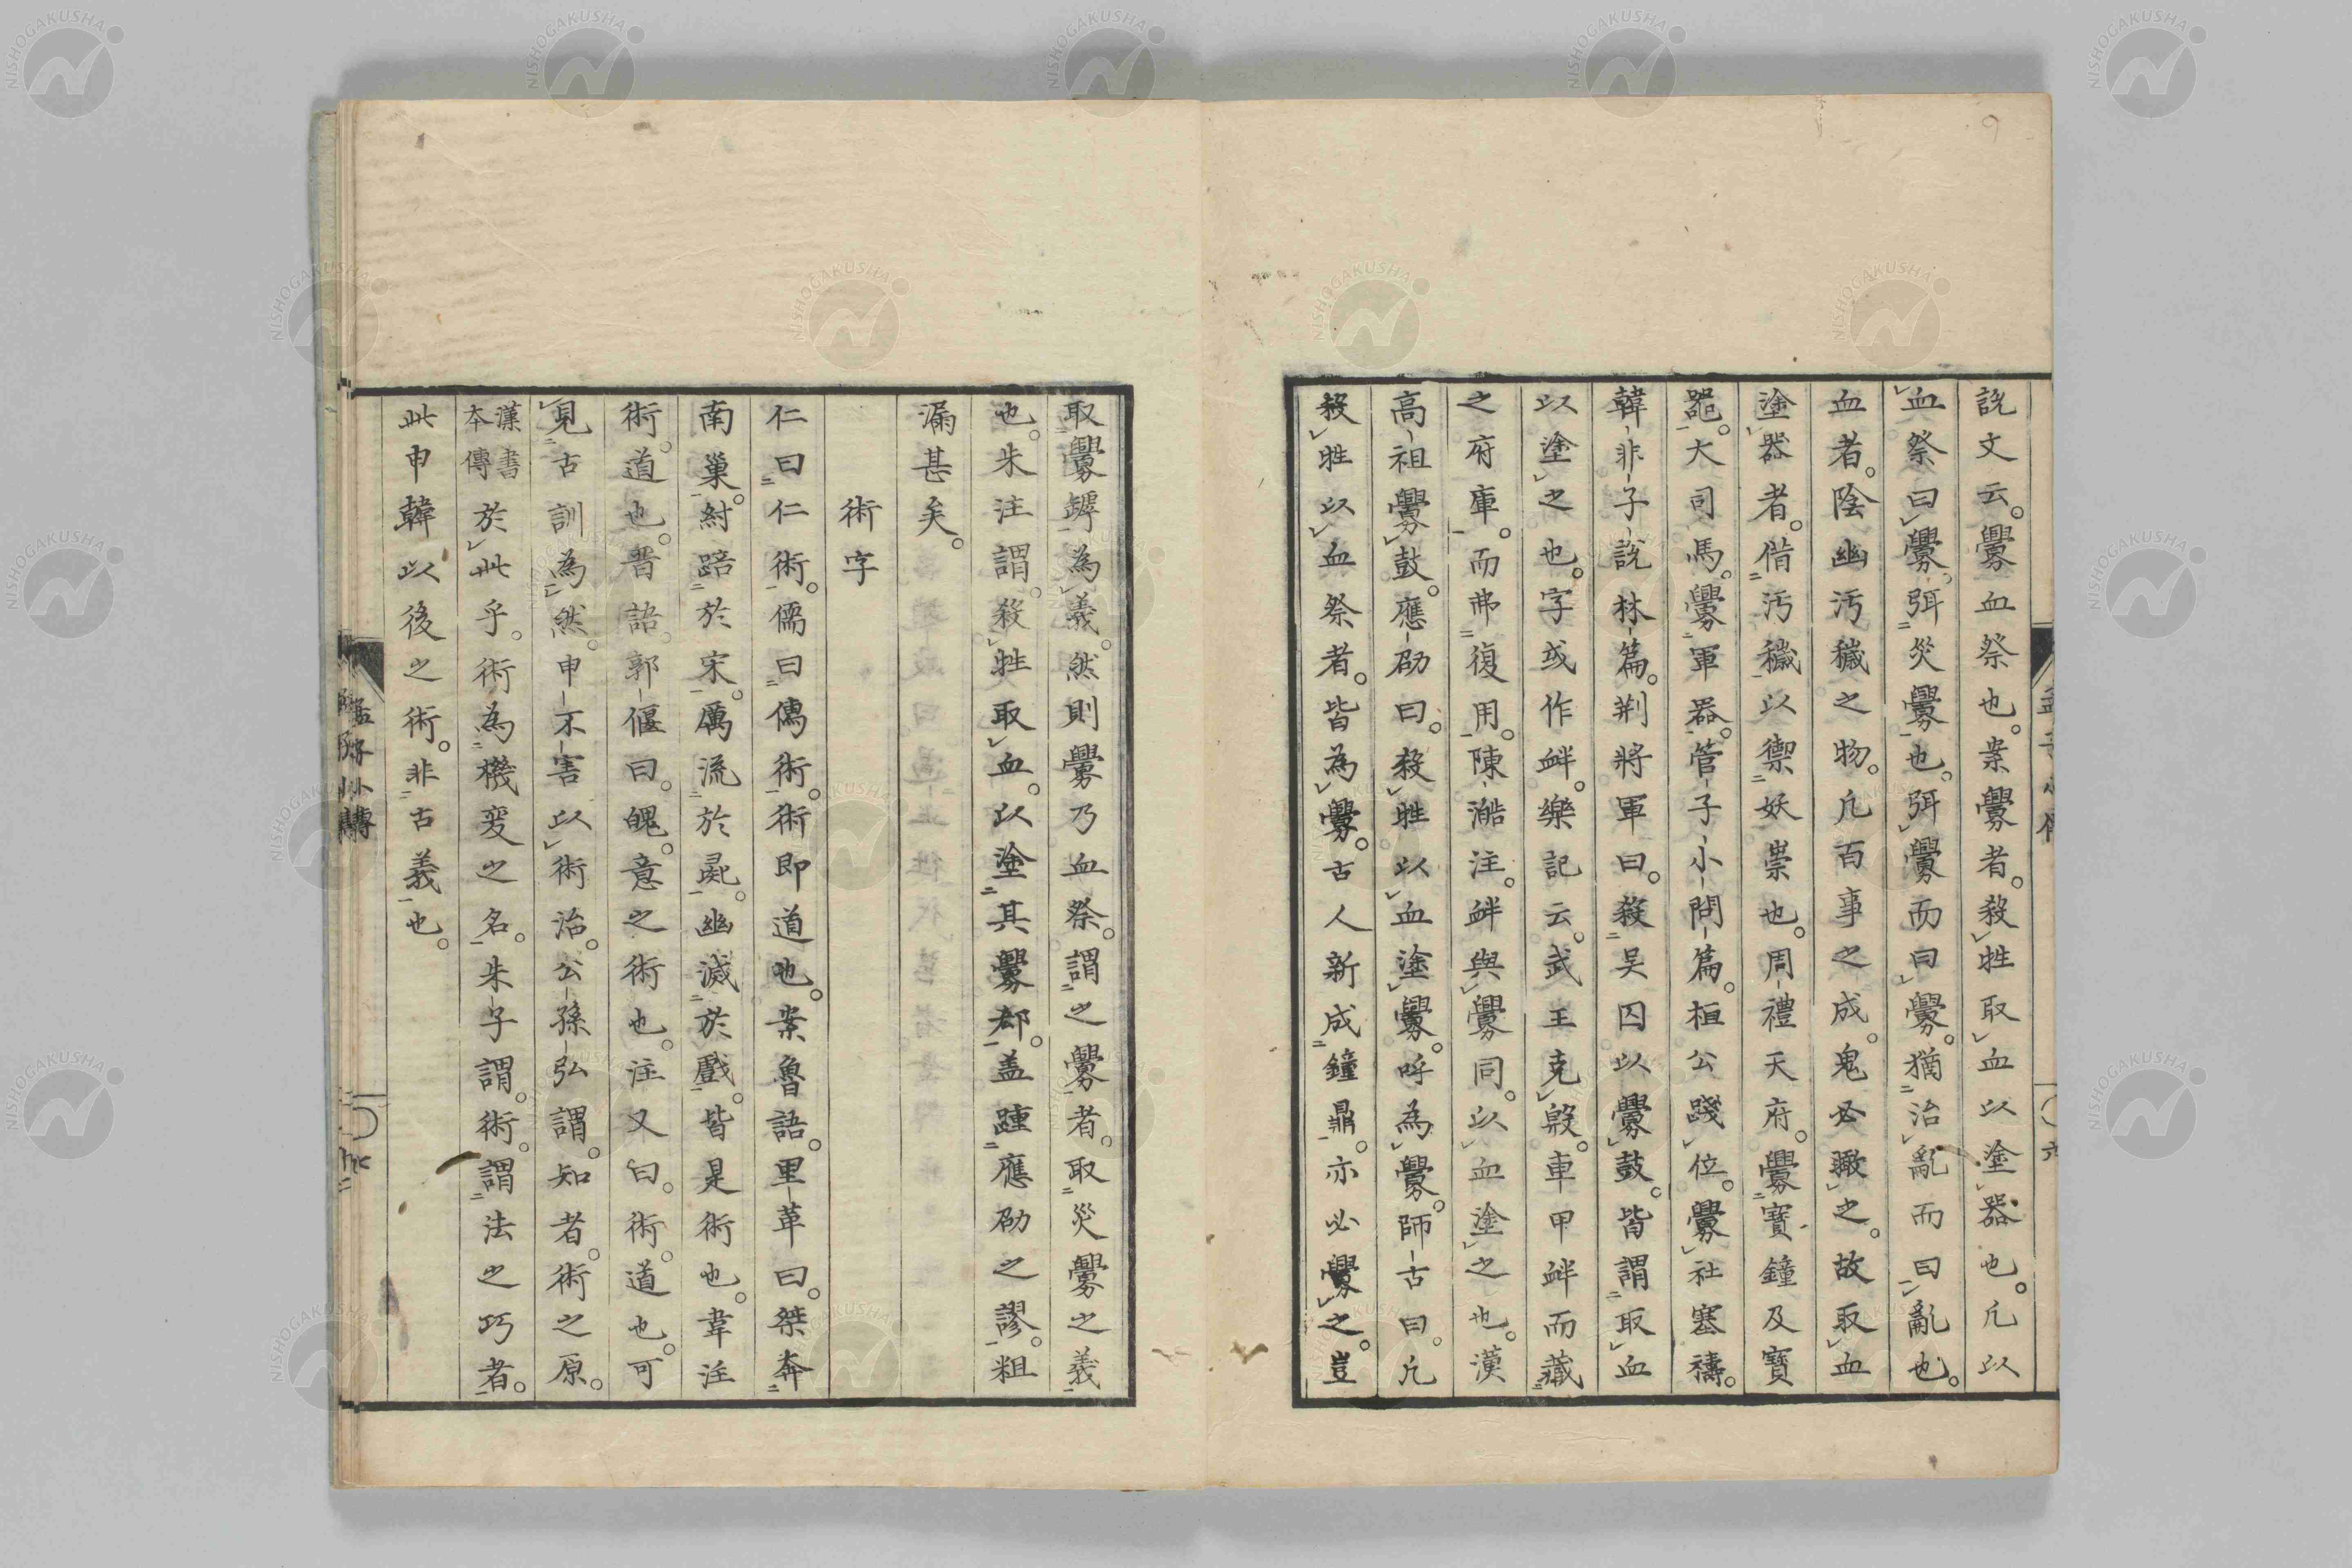 説文云。釁血祭也。案釁者。殺牲取血以塗器也。凡以
血祭曰釁。弭災釁也。弭釁而曰釁。猶治亂而曰亂也。
血者。陰幽汚穢之物。凡百事之成。鬼必瞰之。故取血
塗器者。借汚穢以禦妖祟也。周禮天府。釁寶鐘及寶
器。大司馬。釁軍器。管子小問篇。桓公踐位。釁社塞禱。
韓非子說林篇。荆將軍曰。殺吴囚以釁鼓。皆謂取血
以塗之也。字或作衅。樂記云。武王克殷。車甲衅而藏
之府庫。而弗復用。陳澔注。衅與釁同。以血塗之也。漢
高祖釁鼓。應劭曰。殺牲以血塗釁。呼為釁。師古曰。凡
殺牲以血祭者。皆為釁。古人新成鐘鼎。亦必釁之。豈
取釁罅為義。然則釁乃血祭。謂之釁者。取災釁之義
也。朱注謂。殺牲取血。以塗其釁郄。盖踵應劭之謬。粗
漏甚矣。
術字
仁曰仁術。儒曰傳術。術即道也。案魯語。里革曰。桀奔
南巢。紂踣於宋。厲流於彘。幽滅於戲。皆是術也。韋注
術。道也。晋語。郭偃曰。魄。意之術也。注又曰。術。道也。可
見古訓為然。申不害以術治。公孫弘謂。知者。術之原。
漢書本傳於此乎。術為機変之名。朱子謂。術。謂法之巧者。
此申韓以後之術。非古義也。